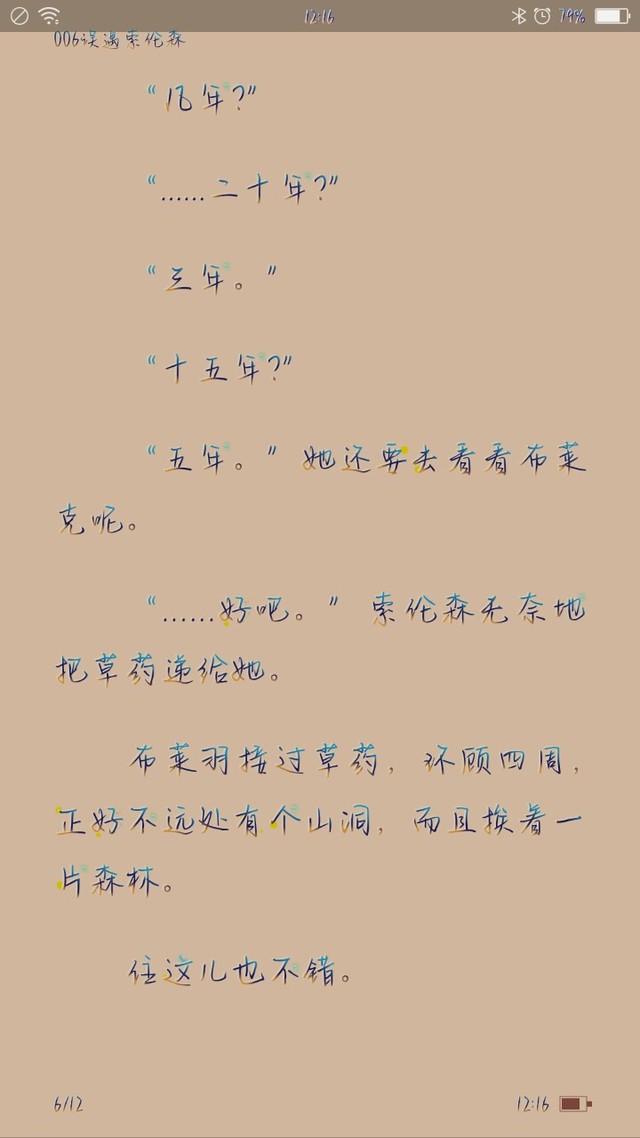 12:16
79%
006误遇索伦森
“几年?”
“……二十年?”
“三年。”
“十五年?”
“五年。”她还要去看看布莱
克呢。
“……好吧。”索伦森无奈地
把草药递给她。
布莱羽接过草药，环顾四周，
正好不远处有个山洞，而且挨着一
片森林。
住这儿也不错。
6/12
12:16